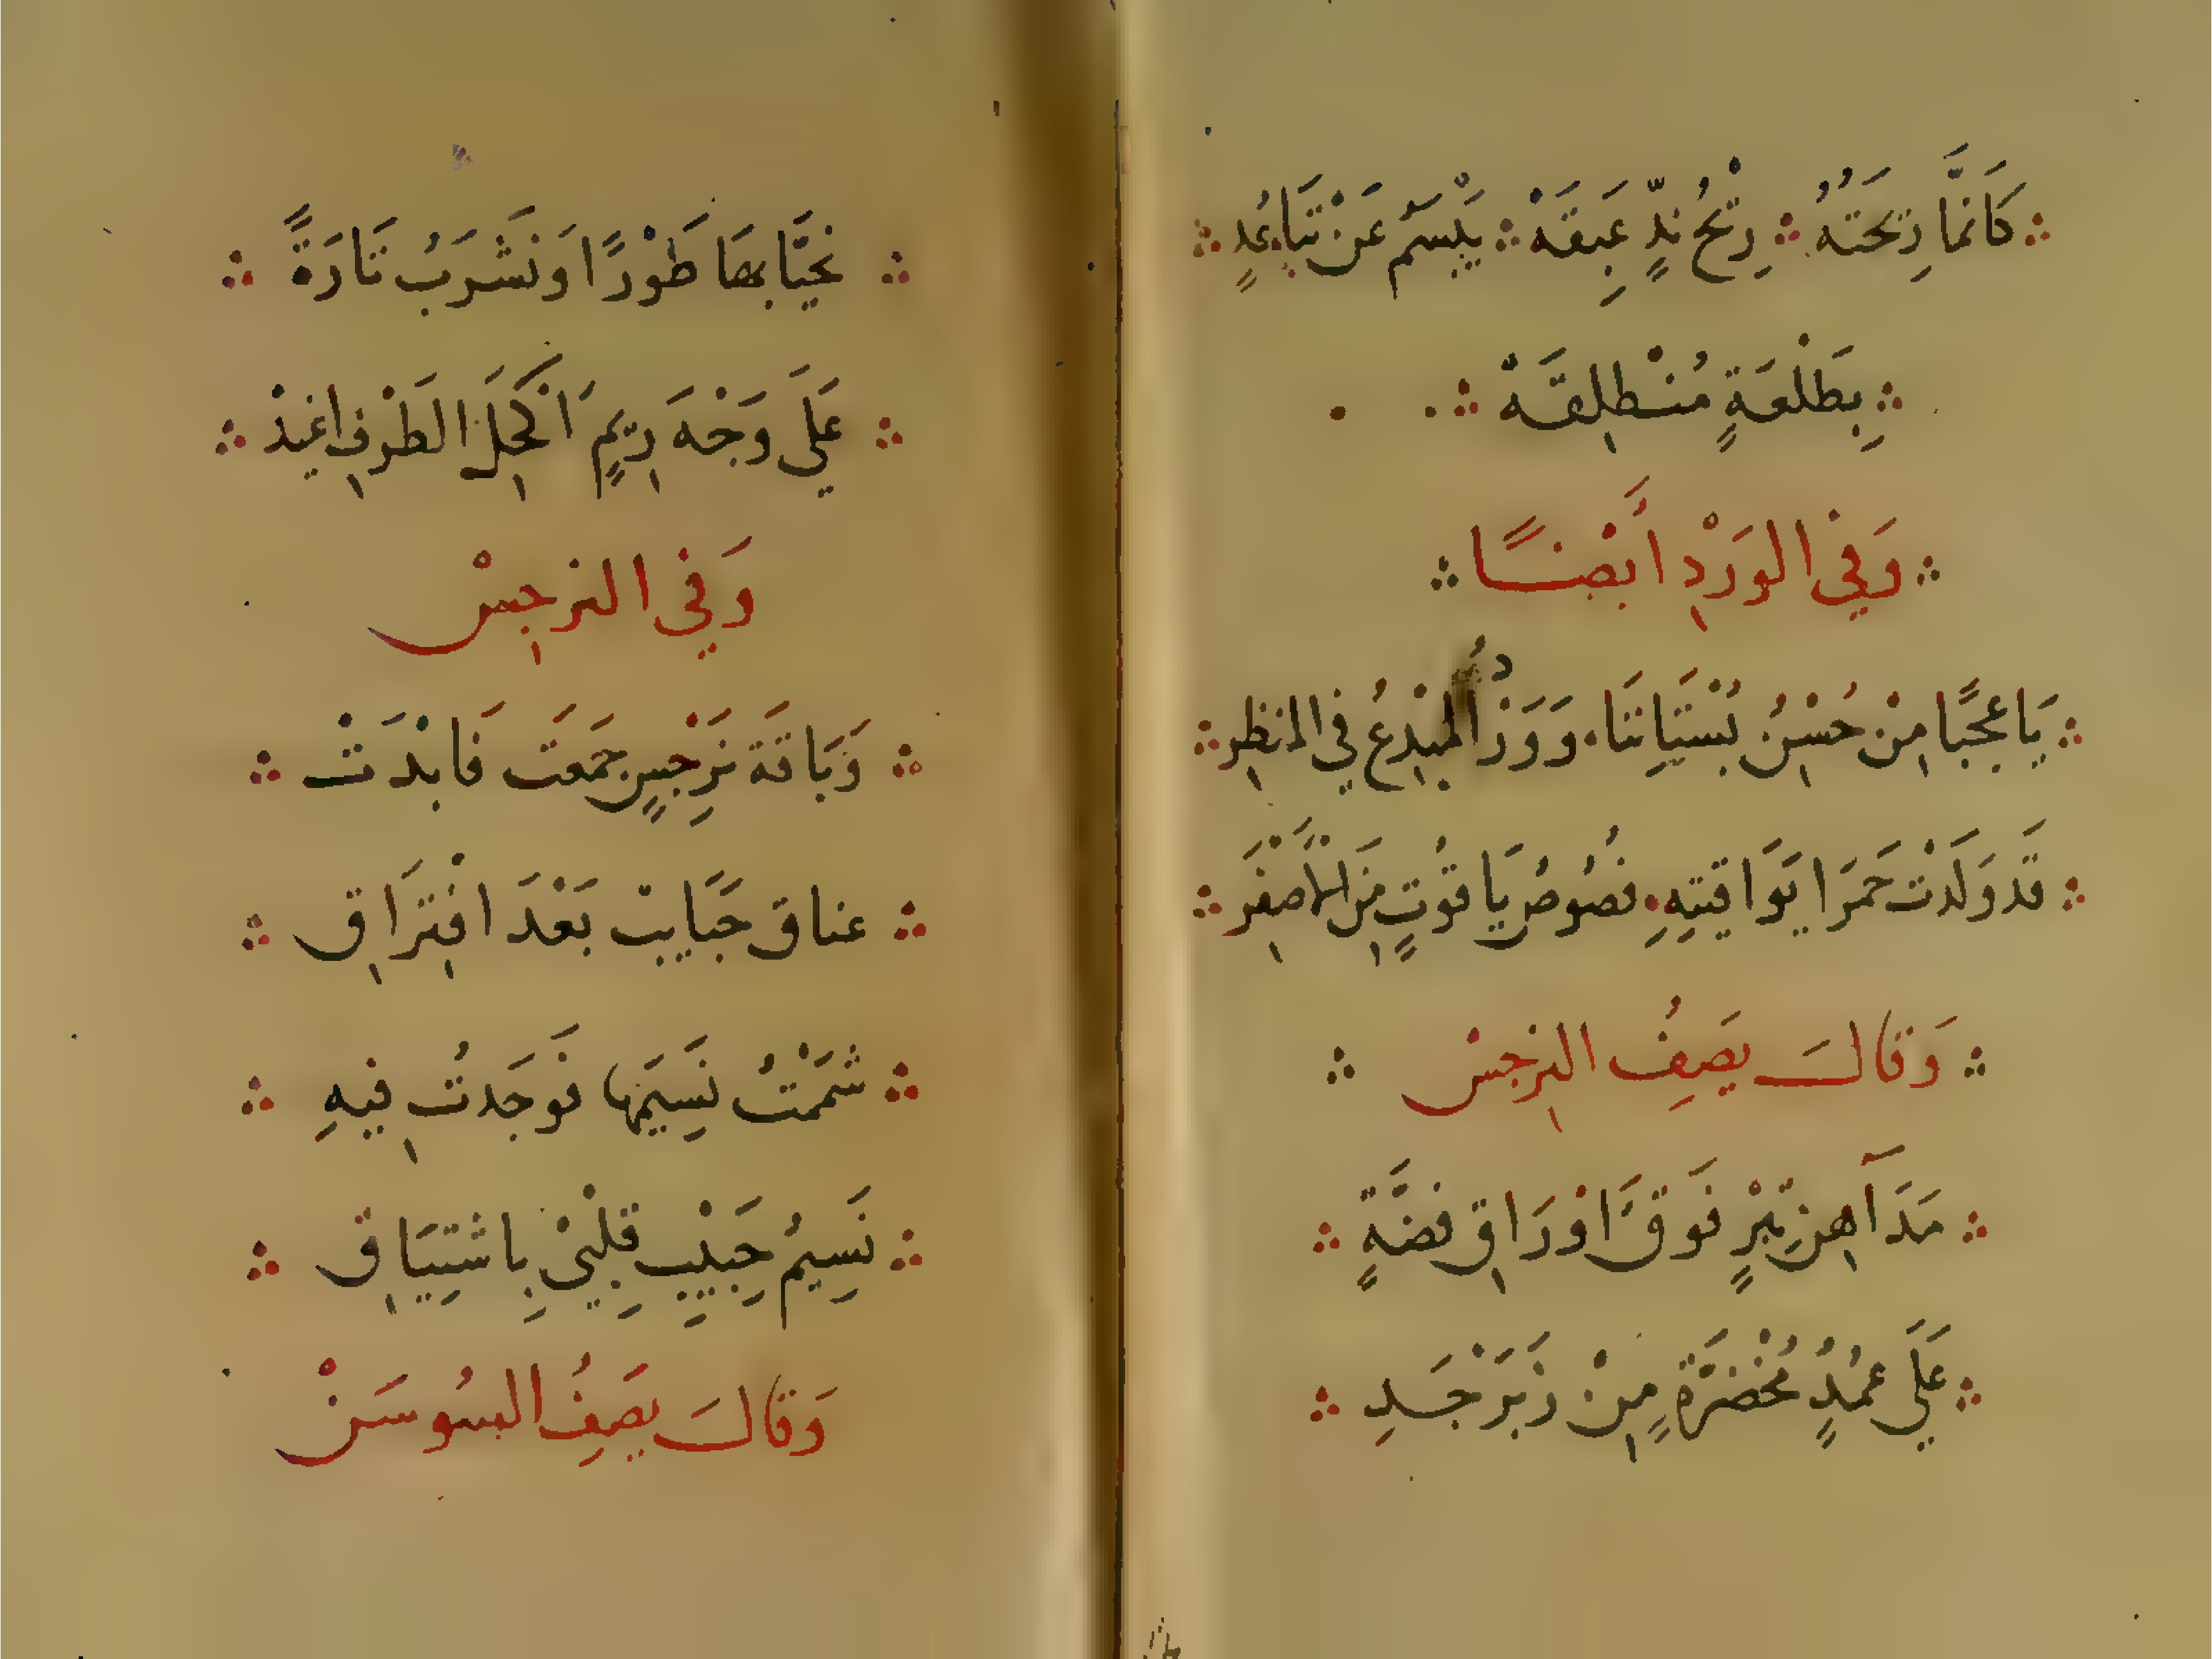 كَانَمَّا رِيحَتهُ رِيْحُ نَدٍّ عَبِقَهْ يَبْسَمُ عَنْ تَبَاعُدٍ
بِطَلْعَةٍ مُنْطلِقَهْ
وَفِي الوَرْدِ أَيْضًا
يَا عجَبًا مِنْ حُسْنِ بُسْتَانِنَا وَوَرْدُ المبْدِعُ فِي المنظرِ
قَد وَلَدَتْ حَمرَا يَوَاقيتِهِ فصُوصُ يَاقوُتٍ مِنَ الأَصْفَرِ
وَقالَ يَصِفُ النرجسْ
مَدَاهن تِبْرٍ فَوقَ اوْرَاقِ فضَّةٍ
عَلَى عمُدٍ مُخْضَرَّةٍ مِنْ زَبَرْجَدِ
نحَيَّا بهَا طَوْرًا وَنَشْرَبُ تَارَةً
عَلَى وَجْهَ رِيمٍ اَكْحَلِ الطَرْفِ اغيَدْ
وَفِي النرجِسْ
وَبَاقَة نَرْجسٍ جمَعَت فَابْدَتْ
عناق حَبَايبْ بَعْدَ افْتِرَاقِ
شمَمْتُ نَسِيَمهَا فَوجَدتُ فيهِ
نَسِيمُ حَبِيْبِ قِلْبيْ بِاشتِيَاقِ
وَقالَ يَصِفُ السُوسَنْ